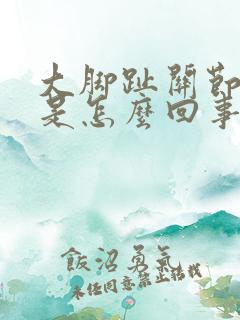 大脚趾關節
是怎麼回事
飯沼勇氣
未经同意禁止转载